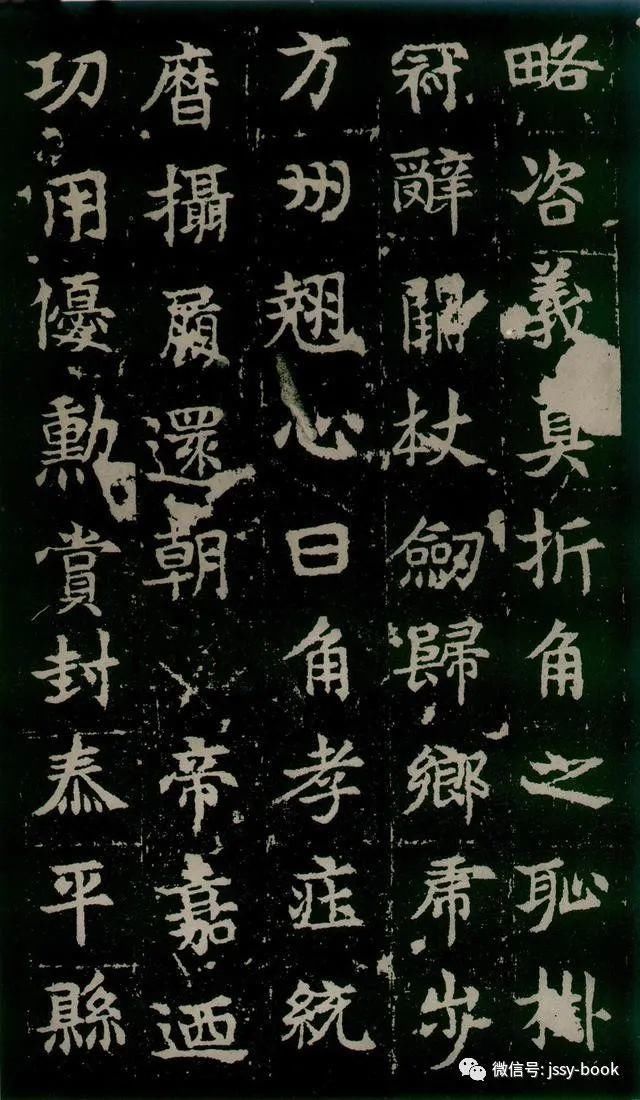 略咨義真折角之恥掛
冠辭闕杖劒歸鄉虎步
方州翹心日角孝莊統
曆攝履還朝　帝嘉迺
功用優勳賞封泰平縣
微信号: jssy-book